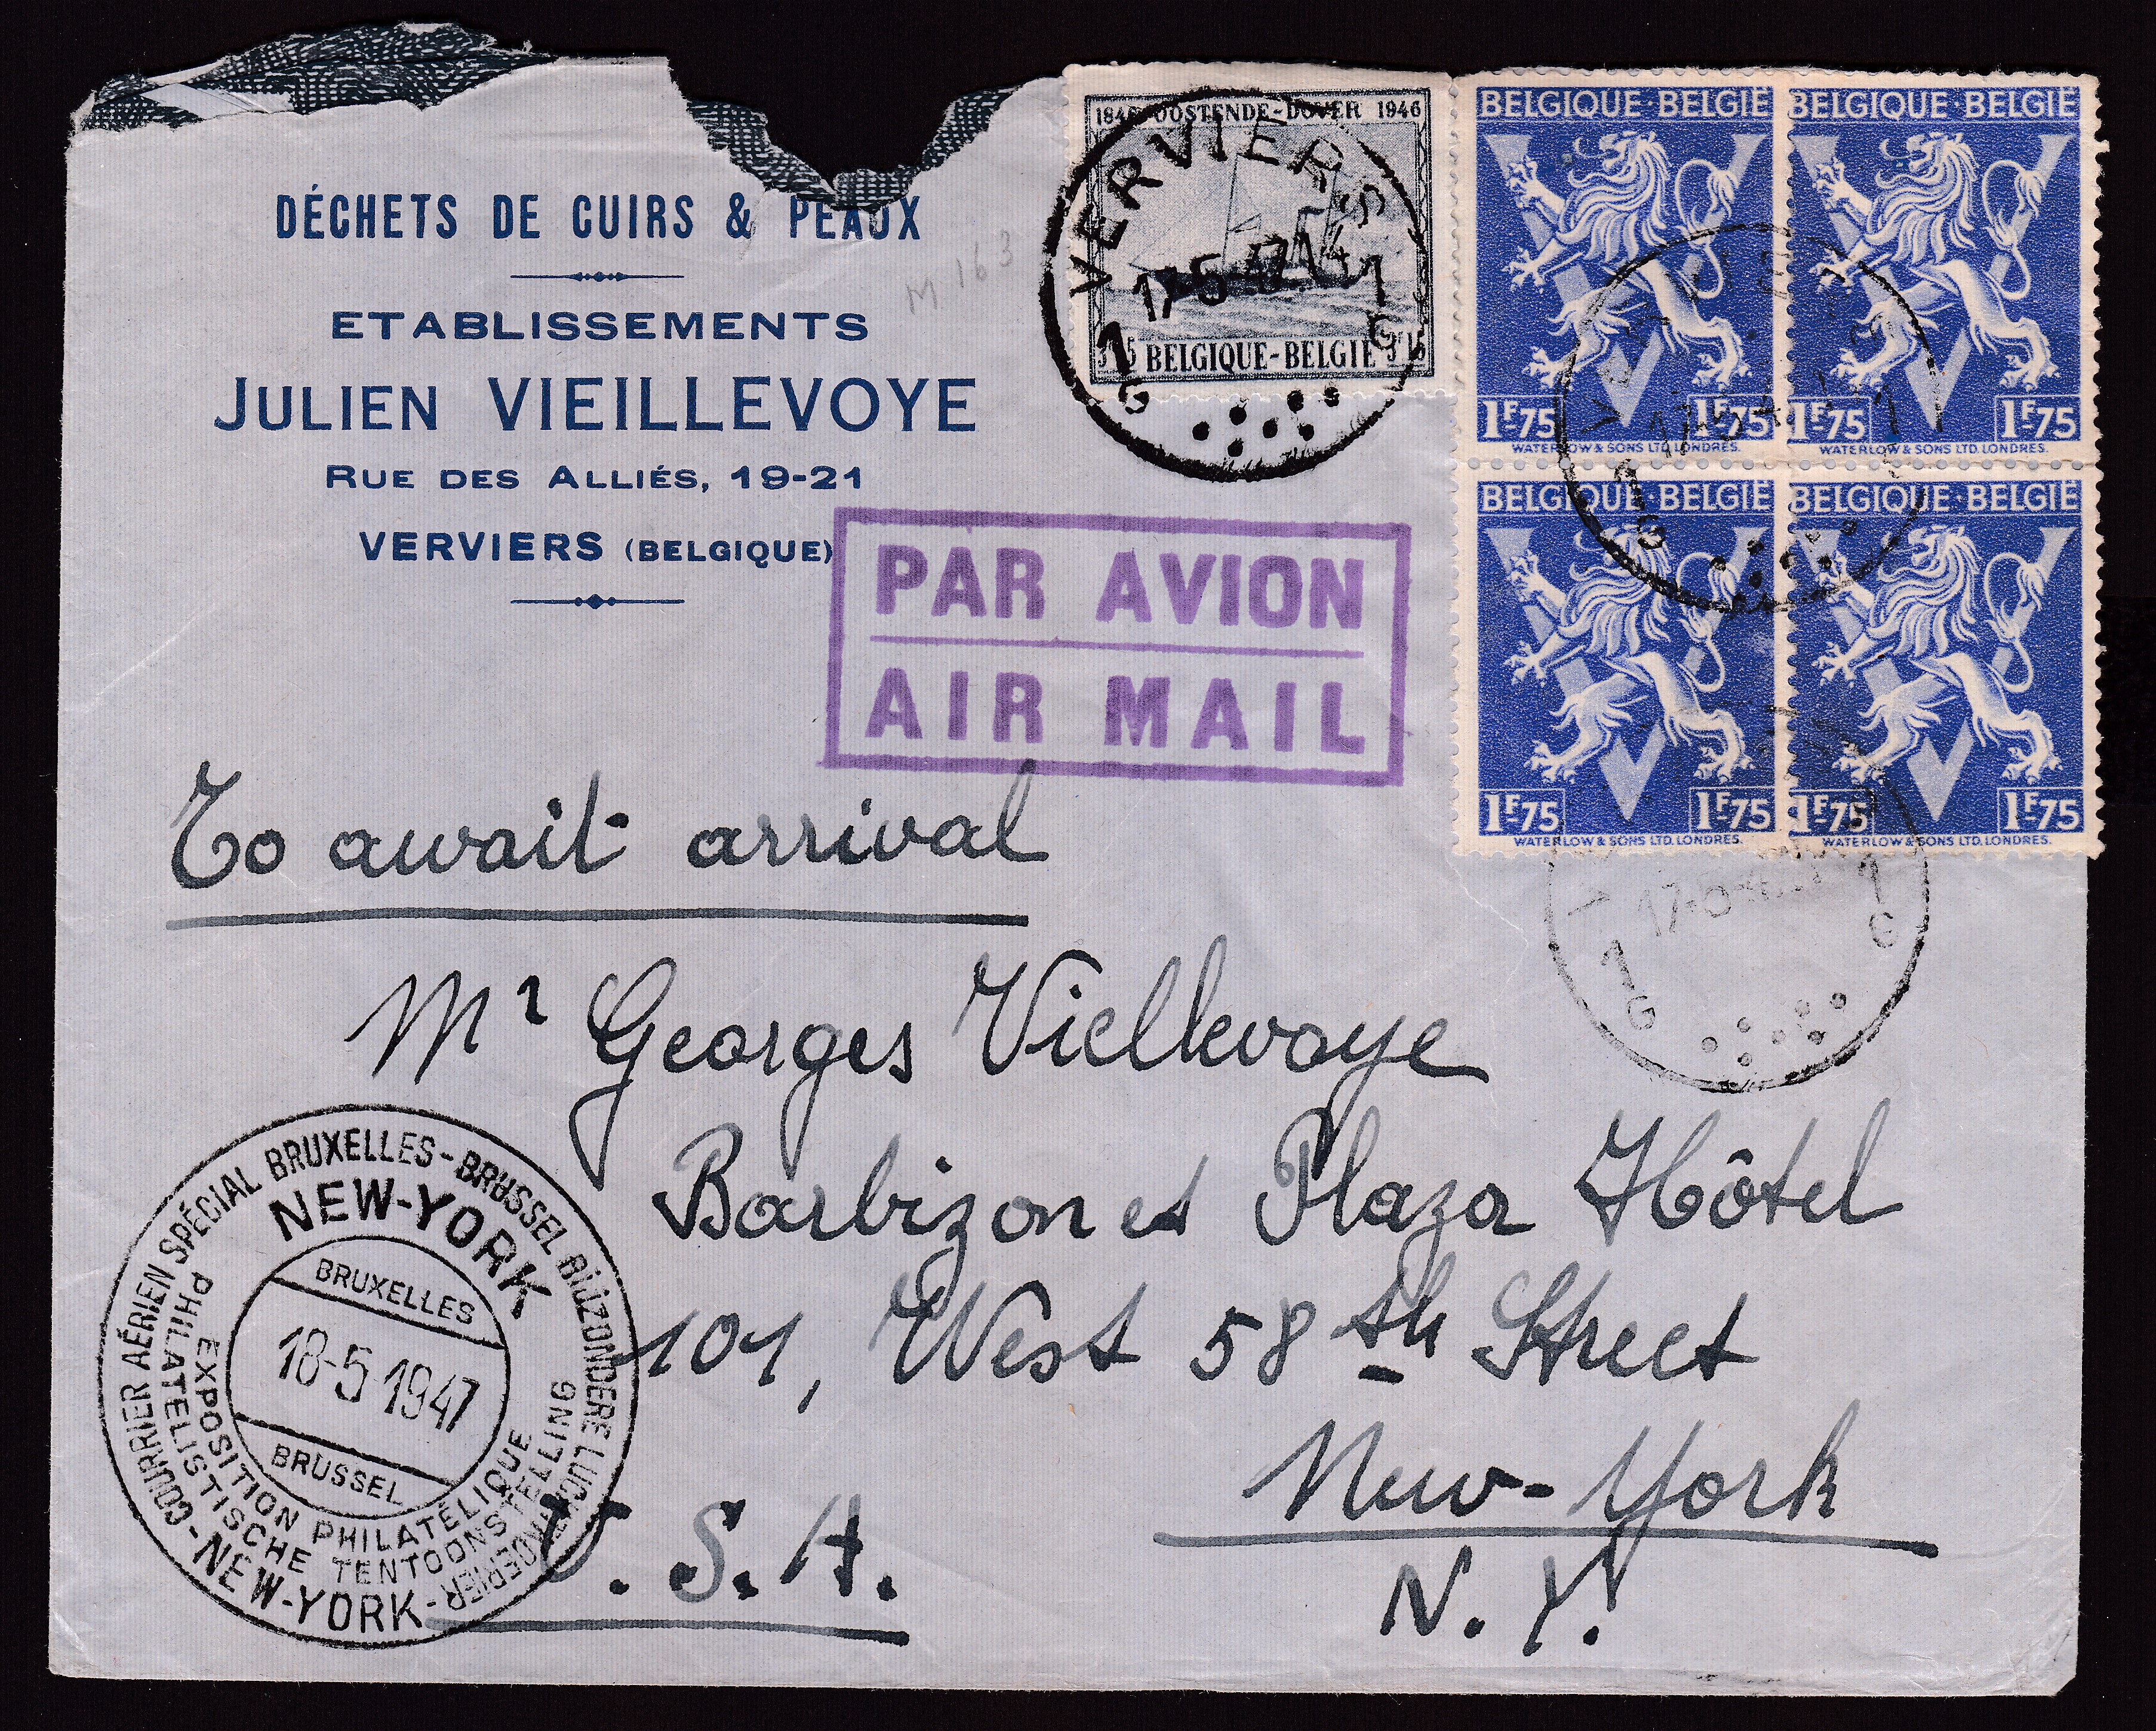 DÉCHETS DE CUIRS & PEAUX
ETABLISSEMENTS
JULIEN VIEILLEVOYE
RUE DES ALLIÉS, 19-21
VERVIERS (BELGIQUE)
M 163
1846 OOSTENDE-DOVER 1946
BELGIQUE-BELGIE 3F15
VERVIERS
1 1
G G
BELGIQUE·BELGIË BELGIQUE·BELGIË
1F75 1F75 1F75 1F75
WATERLOW & SONS LTD. LONDRES. WATERLOW & SONS LTD. LONDRES.
BELGIQUE·BELGIË BELGIQUE·BELGIË
1F75 1F75 1F75 1F75
WATERLOW & SONS LTD. LONDRES. WATERLOW & SONS LTD. LONDRES.
PAR AVION
AIR MAIL
To await arrival
Mr Georges Viellevoye
Barbizon et Plaza Hôtel
101, West 58th Street
New-York
U.S.A. N.Y.
COURRIER AÉRIEN SPÉCIAL BRUXELLES-BRUSSEL BIJZONDERE LUCHT
NEW-YORK
BRUXELLES
18-5 1947
BRUSSEL
EXPOSITION PHILATÉLIQUE
PHILATELISTISCHE TENTOONSTELLING
-NEW-YORK-